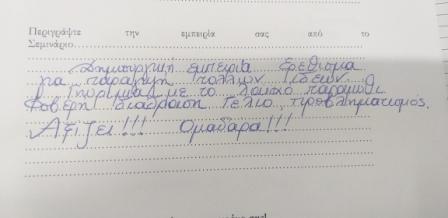 Περιγράψτε την εμπειρία σας από το
Σεμινάριο
Δημιουργική εμπειρία ερέθισμα
για παραγωγή πολλών ιδεών
Γνωριμία με το λαϊκό παραμύθι
Φοβερή διάδραση Γέλιο, προβληματισμός.
Αξίζει!!! Ομαδάρα!!!